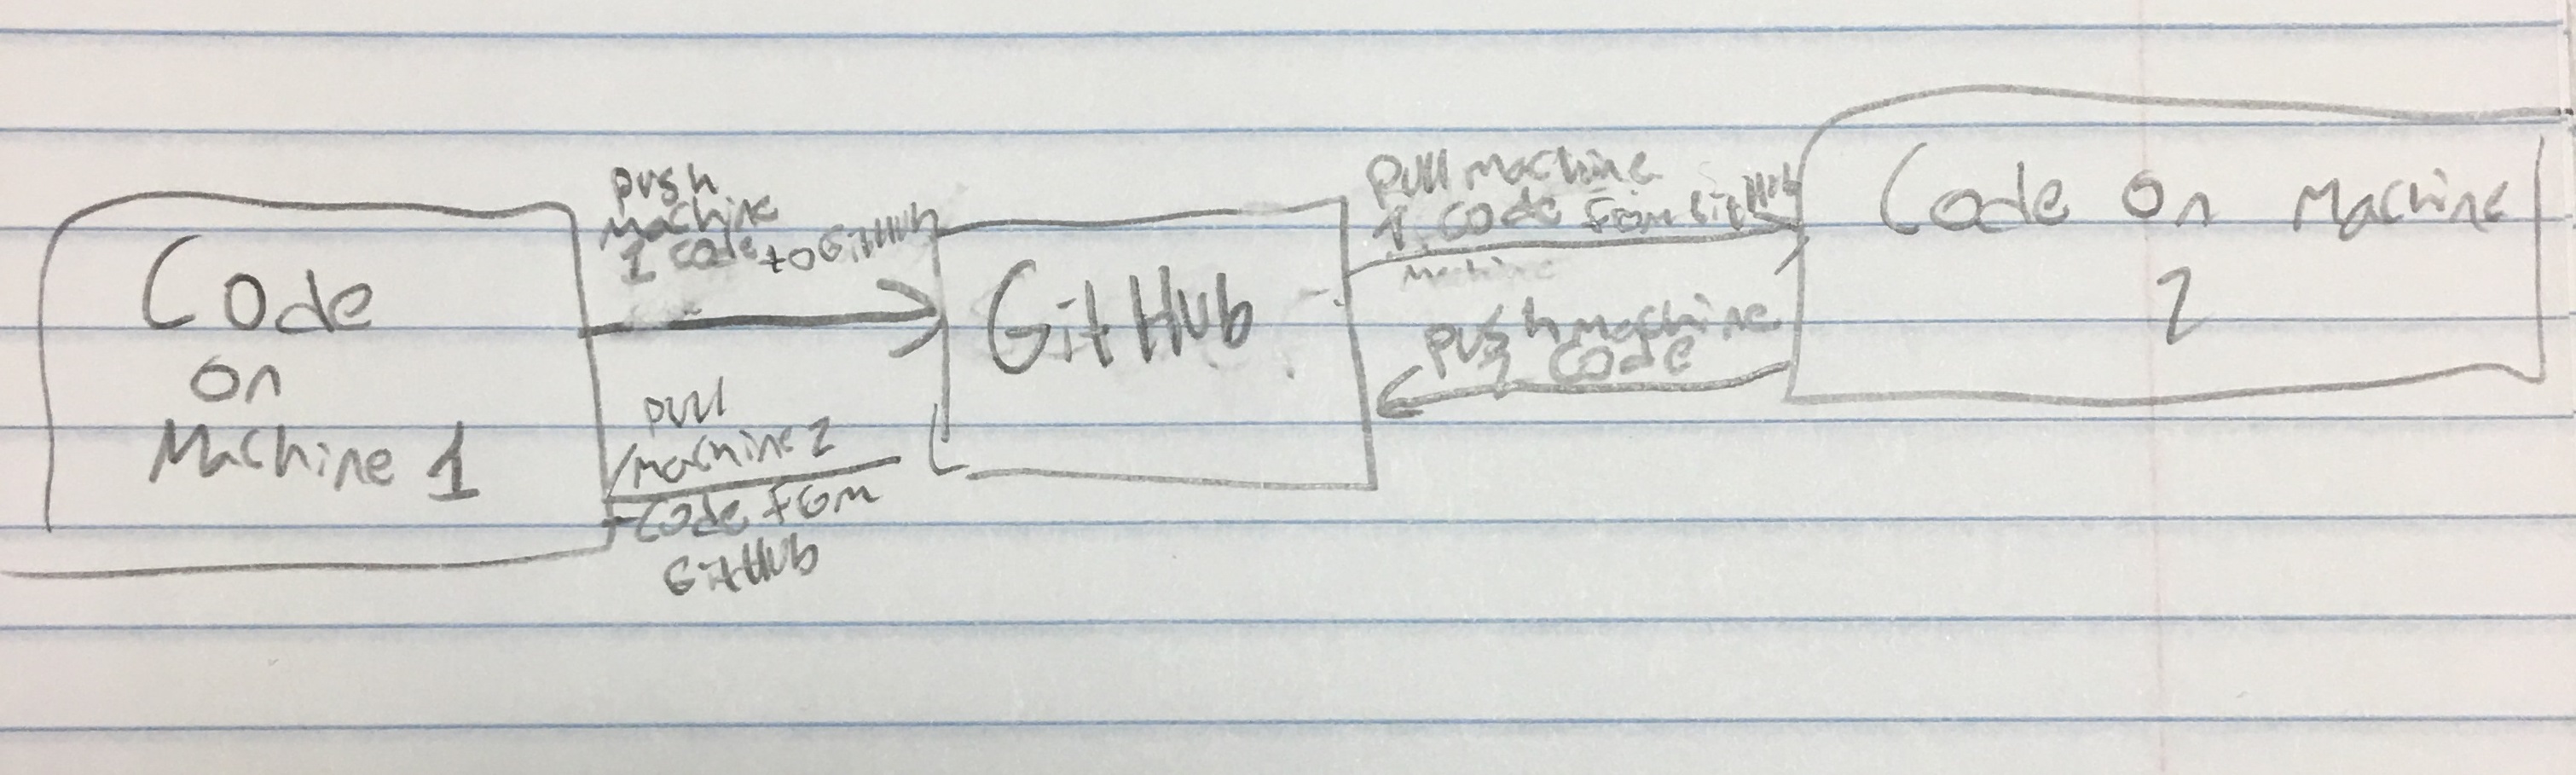 Code
on
Machine 1
push
machine
1 code to GitHub
pull
machine 2
code from
GitHub
GitHub
pull machine
1 code from GitHub
machine
push machine
2 code
Code on Machine
2